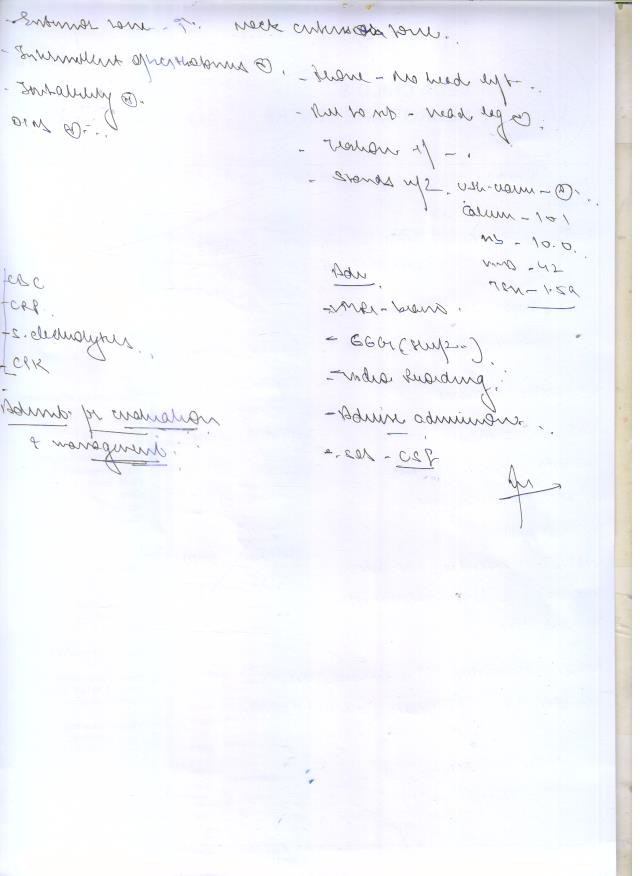 - Extensor tone - ↑. neck extensor tone.
- Intermittent opisthotonus ⊕.
- Irritability ⊕.
DTRS ⊕
- Prone - No head lift
- Pull to sit - head lag ⊕.
- Traction +/-.
- Stands
Calcium - 10.1
- 10.0
- 42
TSH - 1.59
- CBC
- CRP
- S. electrolytes
- CPK
Admit for evaluation
& management
Adv
- MRI - brain
- EEG (Sleep)
- Video Recording
- Advise admission
- CSF